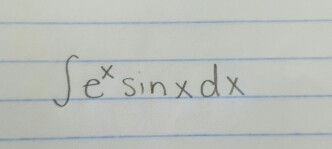 ∫e^x sin x dx